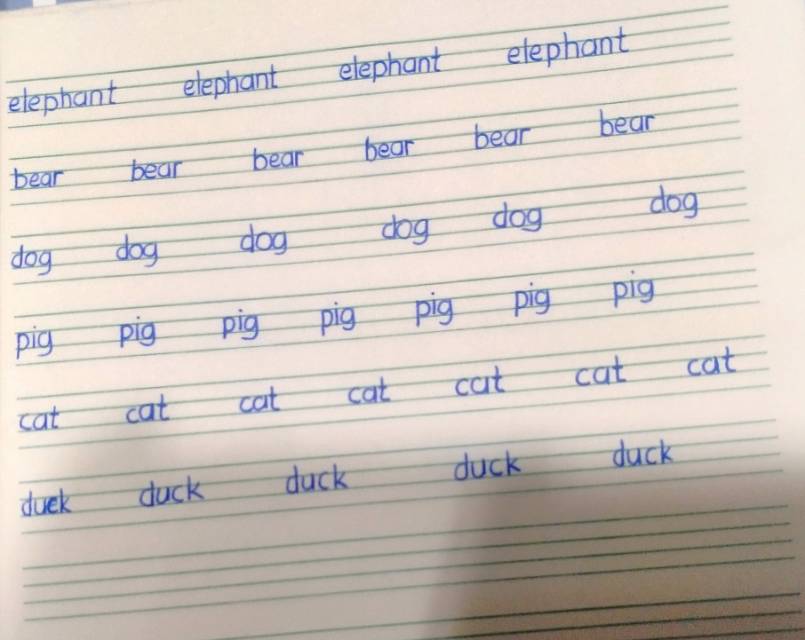 elephant elephant elephant elephant
bear bear bear bear bear bear
dog dog dog dog dog dog
pig pig pig pig pig pig pig
cat cat cat cat cat cat cat
duck duck duck duck duck